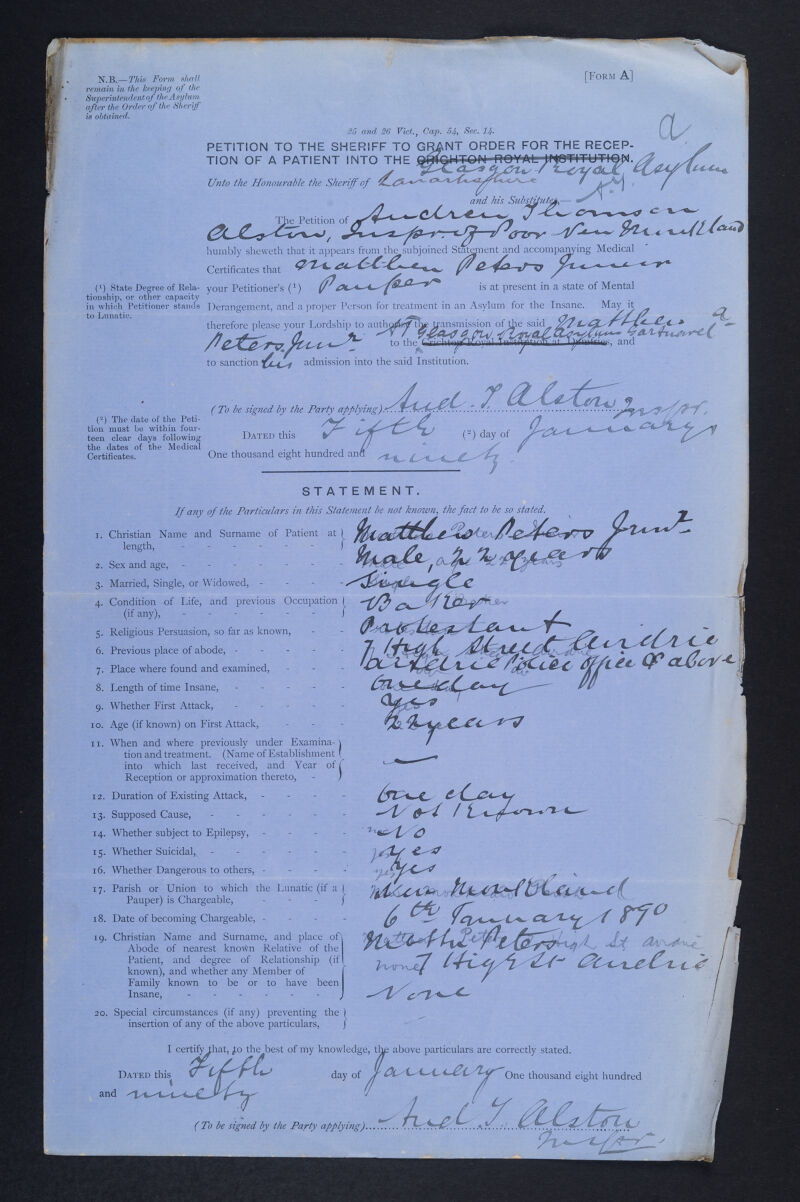 N.B.—This Form shall
remain in the keeping of the
Superintendent of the Asylum
after the Order of the Sheriff
is obtained.
[FORM A]
a
25 and 26 Vict., Cap. 54, Sec. 14.
PETITION TO THE SHERIFF TO GRANT ORDER FOR THE RECEP-
TION OF A PATIENT INTO THE CRICHTON ROYAL INSTITUTION.
Glasgow Royal Asylum
Unto the Honourable the Sheriff of Lanarkshire
and his Substitutes,—
The Petition of Andrew Thomson
Alston, Inspr. of Poor New Monkland
humbly sheweth that it appears from the subjoined Statement and accompanying Medical
Certificates that Matthew Peters Junior
(1) State Degree of Rela-
tionship, or other capacity
in which Petitioner stands
to Lunatic.
your Petitioner's (1) Pauper is at present in a state of Mental
Derangement, and a proper Person for treatment in an Asylum for the Insane. May it
therefore please your Lordship to authorise the transmission of the said Matthew
Peters Junr to the Glasgow Royal Asylum Gartnavel
Crichton Royal Institution at Dumfries, and
to sanction his admission into the said Institution.
(To be signed by the Party applying) And. T Alston
Inspr.
(2) The date of the Peti-
tion must be within four-
teen clear days following
the dates of the Medical
Certificates.
DATED this Fifth (2) day of January
One thousand eight hundred and ninety.
STATEMENT.
If any of the Particulars in this Statement be not known, the fact to be so stated.
1. Christian Name and Surname of Patient at
length, Matthew Peters Junr
2. Sex and age, Male, 22 years
3. Married, Single, or Widowed, Single
4. Condition of Life, and previous Occupation
(if any), Baker
5. Religious Persuasion, so far as known, Protestant
6. Previous place of abode, 7 High Street Airdrie
7. Place where found and examined, Airdrie Police Office & above
8. Length of time Insane, One day
9. Whether First Attack, Yes
10. Age (if known) on First Attack, 22 years
11. When and where previously under Examina-
tion and treatment. (Name of Establishment
into which last received, and Year of
Reception or approximation thereto, —
12. Duration of Existing Attack, One day
13. Supposed Cause, Not Known
14. Whether subject to Epilepsy, No
15. Whether Suicidal, Yes
16. Whether Dangerous to others, Yes
17. Parish or Union to which the Lunatic (if a
Pauper) is Chargeable, New Monkland
18. Date of becoming Chargeable, 6th January 1890
19. Christian Name and Surname, and place of
Abode of nearest known Relative of the
Patient, and degree of Relationship (if
known), and whether any Member of
Family known to be or to have been
Insane,
Matthw Peters
7 High St Airdrie
None
20. Special circumstances (if any) preventing the
insertion of any of the above particulars,
I certify that, to the best of my knowledge, the above particulars are correctly stated.
DATED this Fifth day of January One thousand eight hundred
and ninety
(To be signed by the Party applying) And T. Alston
Inspr.